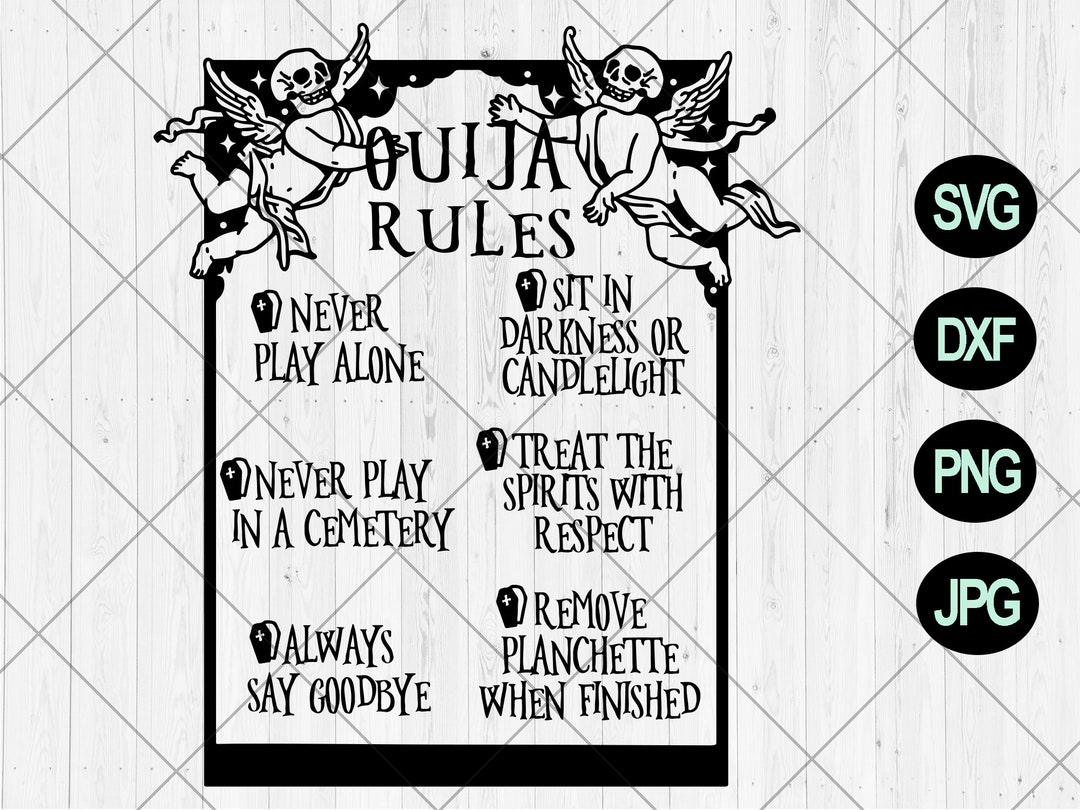 OUIJA
RULES
NEVER
PLAY ALONE
SIT IN
DARKNESS OR
CANDLELIGHT
NEVER PLAY
IN A CEMETERY
TREAT THE
SPIRITS WITH
RESPECT
ALWAYS
SAY GOODBYE
REMOVE
PLANCHETTE
WHEN FINISHED
SVG
DXF
PNG
JPG